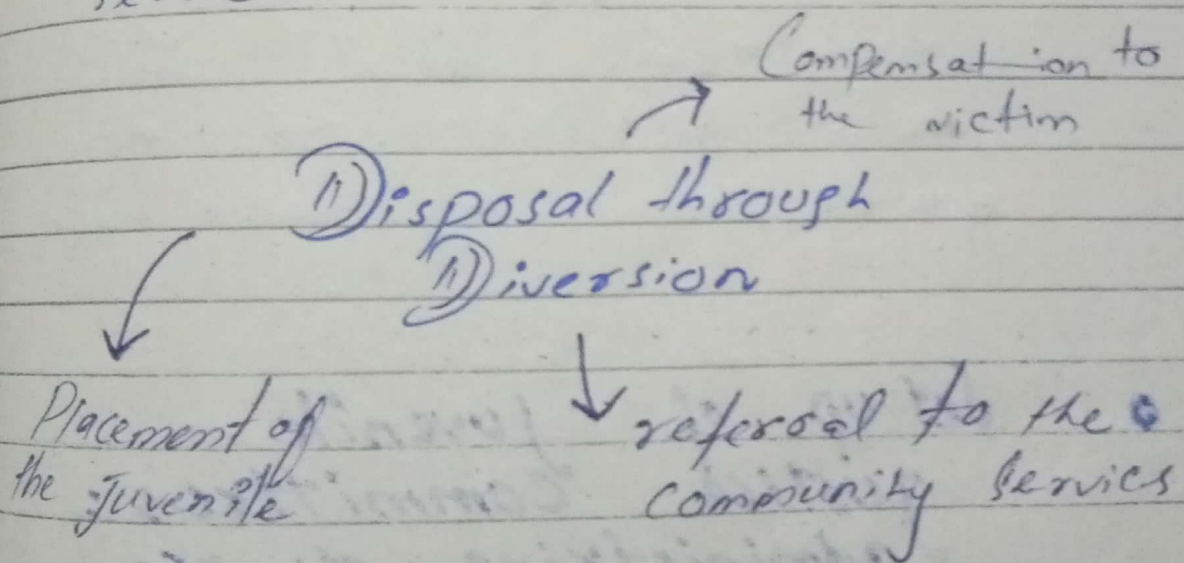 Compensation to
the victim
Disposal through
Diversion
Placement of
the Juvenile
referral to the
community Servics